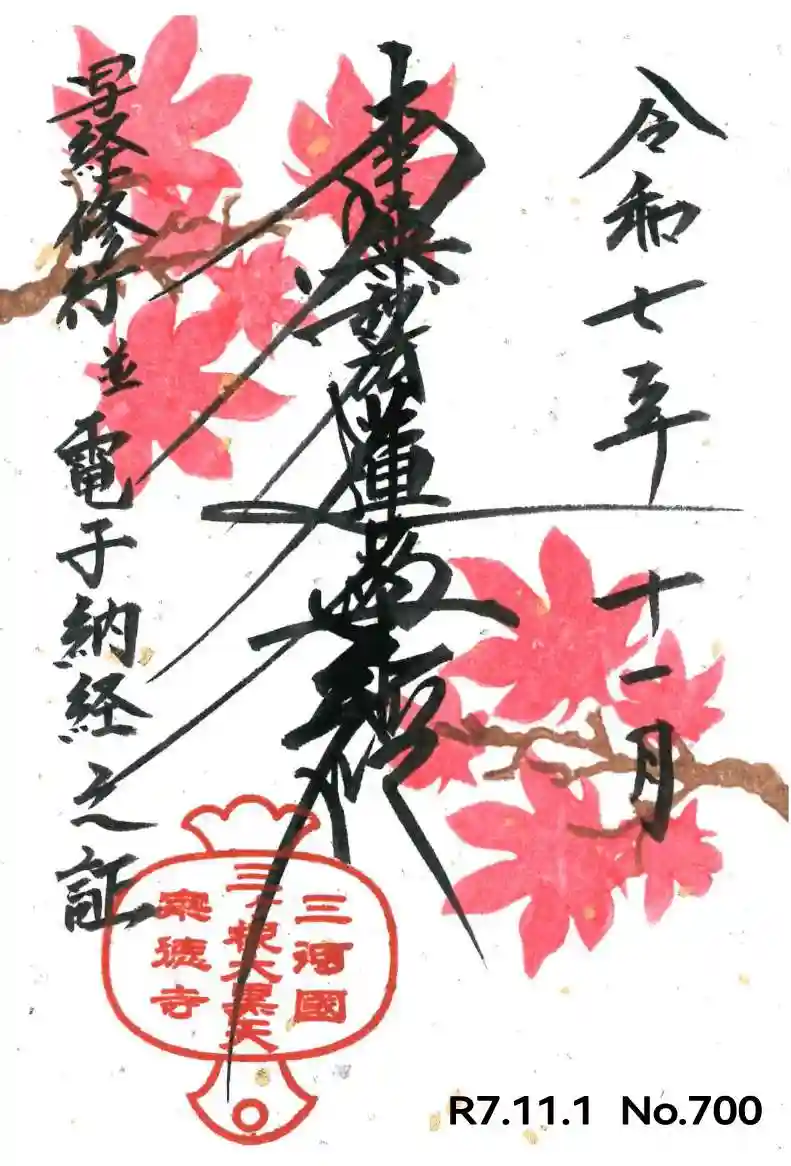 令和七年 十一月
南無妙法蓮華経
写経修行並電子納経之証
三河國
三ヶ根大黒天
宗徳寺
R7.11.1 No.700